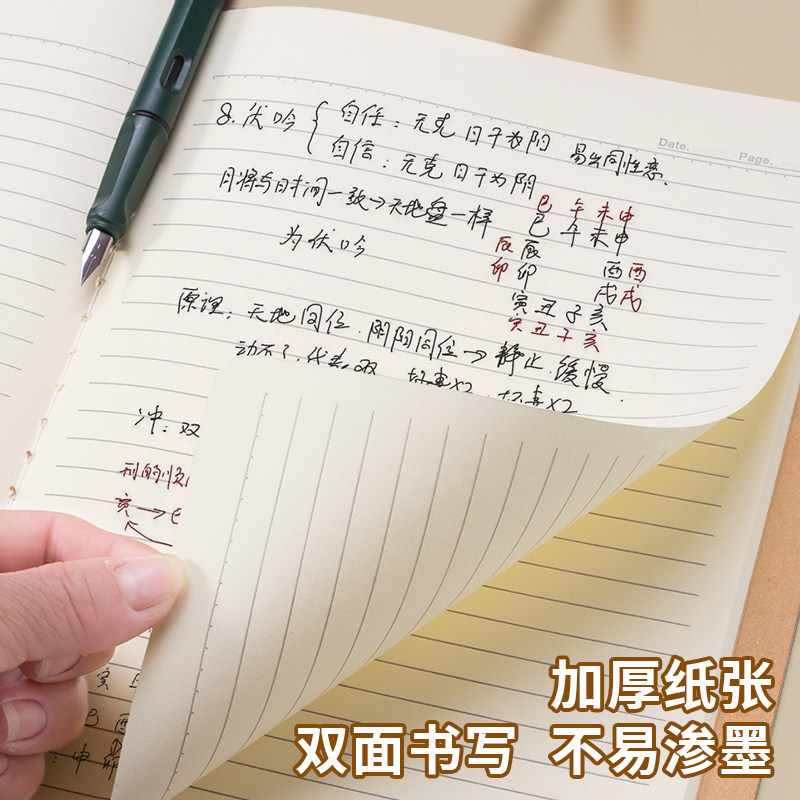 Date.
Page.
8. 伏吟 { 自任：元克 日干为阳 易出同性恋.
自信：元克 日干为阴
月将与时间一致→天地盘一样
为伏吟
巳 午 未 申
巳 午 未 申
辰 辰 酉 酉
卯 卯 戌 戌
寅 丑 子 亥
寅 丑 子 亥
原理：天地同位. 阴阳同位→静止. 缓慢.
动不了. 代表双 X2 X2
冲：双
刑的顺
亥→
寅
巳 酉
申
加厚纸张
双面书写 不易渗墨